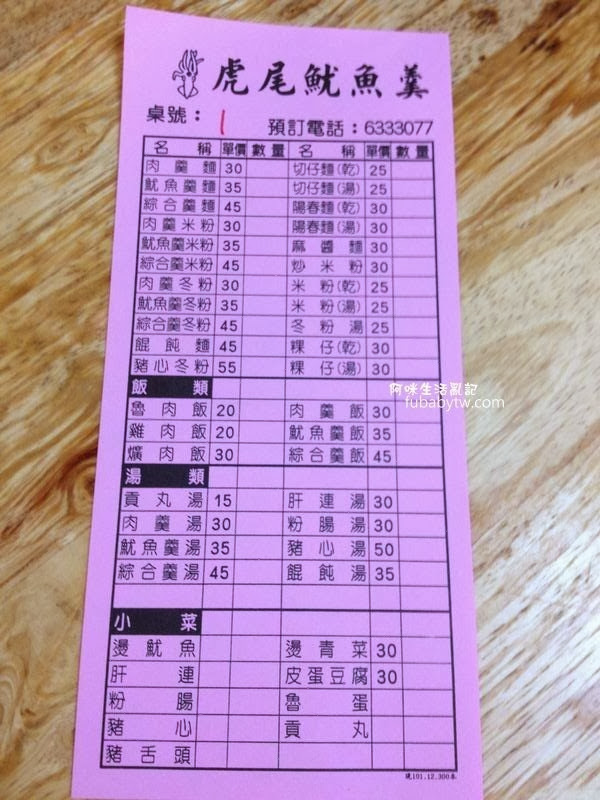 虎尾魷魚羹
桌號： 1 預訂電話：6333077
名稱 單價 數量 名稱 單價 數量
肉羹麵 30 切仔麵(乾) 25
魷魚羹麵 35 切仔麵(湯) 25
綜合羹麵 45 陽春麵(乾) 30
肉羹米粉 30 陽春麵(湯) 30
魷魚羹米粉 35 麻醬麵 30
綜合羹米粉 45 炒米粉 30
肉羹冬粉 30 米粉(乾) 25
魷魚羹冬粉 35 米粉(湯) 25
綜合羹冬粉 45 冬粉湯 25
餛飩麵 45 粿仔(乾) 30
豬心冬粉 55 粿仔(湯) 30
飯類
阿咪生活亂記
fubabytw.com
魯肉飯 20 肉羹飯 30
雞肉飯 20 魷魚羹飯 35
爌肉飯 30 綜合羹飯 45
湯類
貢丸湯 15 肝連湯 30
肉羹湯 30 粉腸湯 30
魷魚羹湯 35 豬心湯 50
綜合羹湯 45 餛飩湯 35
小菜
燙魷魚 燙青菜 30
肝連 皮蛋豆腐 30
粉腸 魯蛋
豬心 貢丸
豬舌頭
101.12.300本